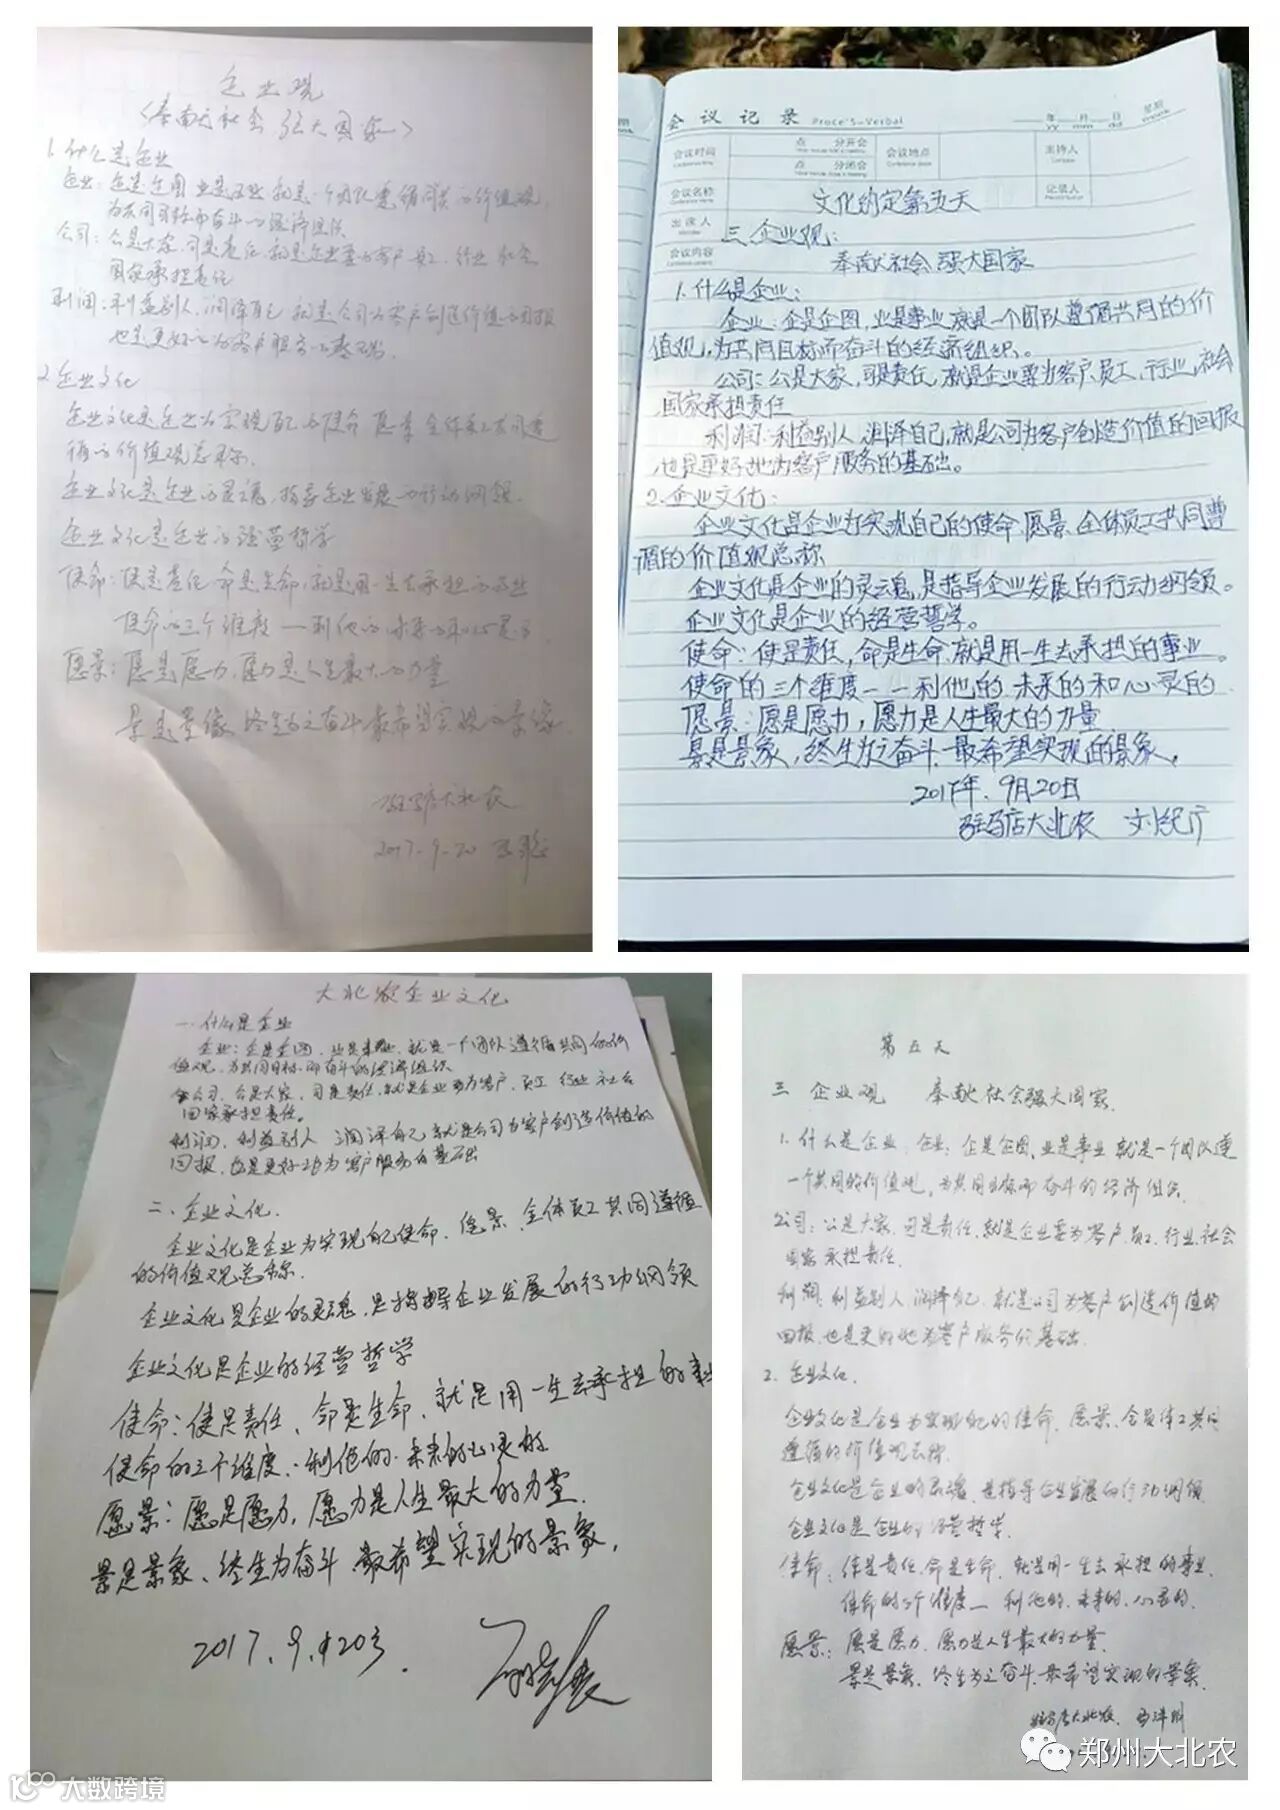 企业观
<奉献社会 强大国家>
1.什么是企业
企业:企是企图 业是事业 就是一个团队遵循共同的价值观,
为共同目标而奋斗的经济组织
公司:公是大家,司是责任,就是企业要为客户 员工,行业 社会
国家承担责任
利润:利益别人,润泽自己 就是公司为客户创造价值的回报
也是更好的为客户服务的基础.
2.企业文化
企业文化是企业为实现自己的使命 愿景 全体员工共同遵
循的价值观总称.
企业文化是企业的灵魂,指导企业发展的行动纲领.
企业文化是企业的经营哲学
使命:使是责任 命是生命,就是用一生去承担的事业
使命的三个维度 — 利他的 未来的和心灵的.
愿景:愿是愿力,愿力是人生最大的力量
景是景像 终生为之奋斗 最希望实现的景像.
驻马店大北农
2017-9-20
会议记录 Proce'S-Verbal
年 月 日 星期
YY mm dd
会议时间 点 分开会 会议地点 主持人
点 分闭会
会议名称 文化约定第五天 记录人
出席人
三.企业观:
会议内容 奉献社会 强大国家
1.什么是企业:
企业:企是企图,业是事业 就是一个团队遵循共同的价
值观,为共同目标而奋斗的经济组织。
公司:公是大家,司是责任,就是企业要为客户、员工、行业、社会
国家承担责任
利润:利益别人,润泽自己,就是公司为客户创造价值的回报
,也是更好地为客户服务的基础。
2.企业文化:
企业文化是企业为实现自己的使命、愿景、全体员工共同遵
循的价值观总称
企业文化是企业的灵魂,是指导企业发展的行动纲领。
企业文化是企业的经营哲学。
使命:使是责任,命是生命.就是用一生去承担的事业。
使命的三个维度——利他的 未来的 和心灵的
愿景:愿是愿力,愿力是人生最大的力量
景是景象,终生为之奋斗.最希望实现的景象。
2017年.9月20日
驻马店大北农 刘纪广
大北农企业文化
一.什么是企业
企业:企是企图.业是事业.就是一个团队遵循共同的价
值观,为共同目标而奋斗的经济组织
公司,公是大家,司是责任,就是企业要为客户,员工 行业 社会
国家承担责任。
利润,利益别人 润泽自己 就是公司为客户创造价值的
回报,也是更好地为客户服务的基础
二.企业文化.
企业文化是企业为实现自己使命.愿景 全体员工共同遵循
的价值观总称.
企业文化是企业的灵魂.是指导企业发展的行动纲领
企业文化是企业的经营哲学
使命:使是责任、命是生命、就是用一生去承担的事业
使命的三个维度:利他的.未来的心灵的
愿景:愿是愿力,愿力是人生最大的力量.
景是景象、终生为奋斗 最希望实现的景象.
2017.9.20号.
第五天
三 企业观 奉献社会强大国家.
1.什么是企业:企业:企是企图、业是事业 就是一个团队遵
一个共同的价值观,为共同目标而奋斗的经济组织.
公司:公是大家,司是责任.就是企业要为客户.员工.行业.社会
国家承担责任.
利润:利益别人.润泽自己.就是公司为客户创造价值的
回报.也是更好地为客户服务的基础.
2.企业文化.
企业文化是企业为实现自己的使命.愿景、全员体工共同
遵循的价值观总称.
企业文化是企业的灵魂.是指导企业发展的行动纲领
企业文化是企业的经营哲学.
使命:使是责任.命是生命.就是用一生去承担的事业.
使命的3个维度— 利他的.未来的.心灵的.
愿景:愿是愿力.愿力是人生最大的力量.
景是景象.终生为之奋斗.最希望实现的景象.
驻马店大北农.
郑州大北农
大数跨境